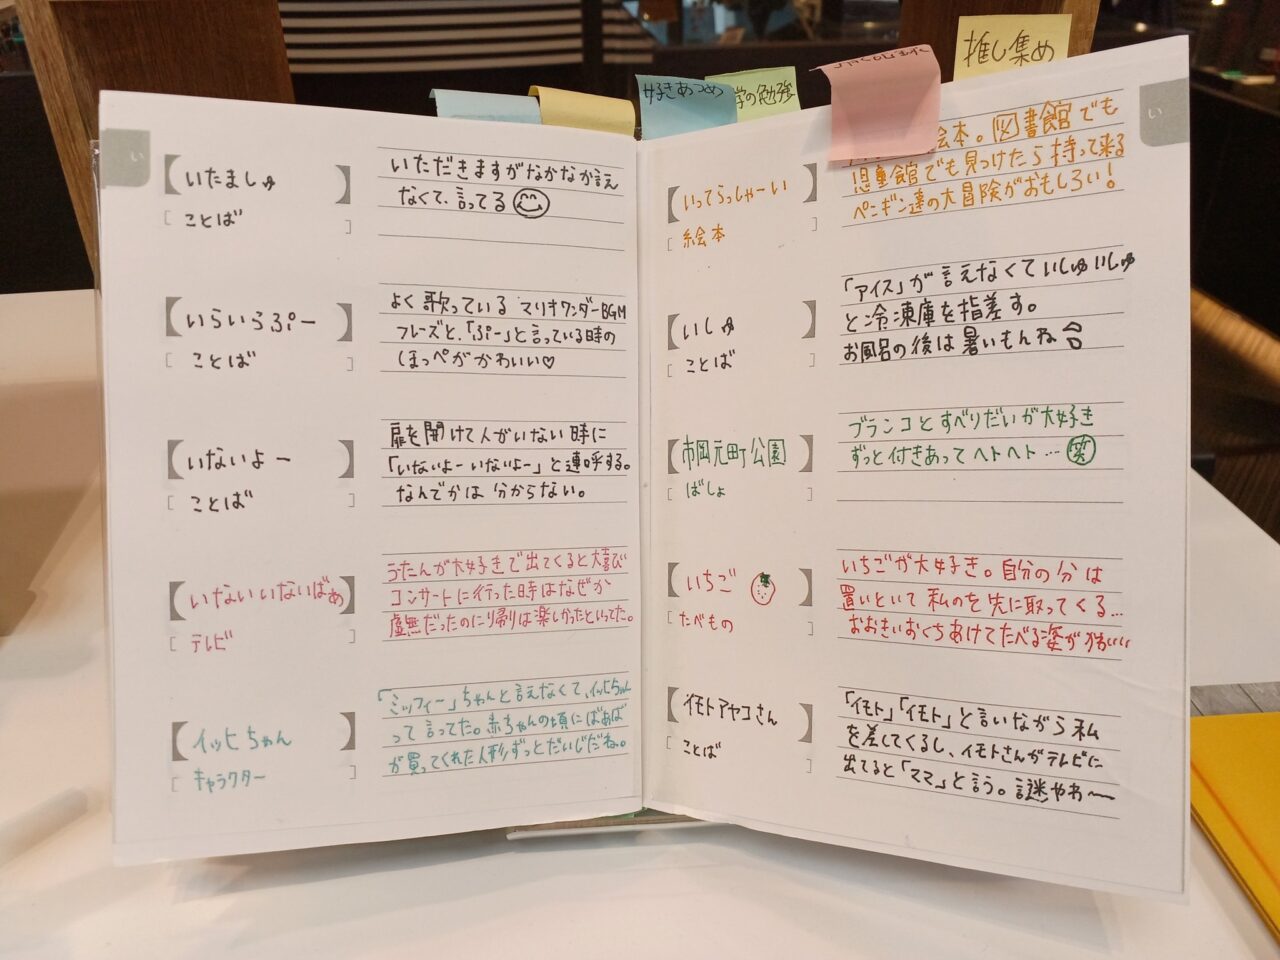 好きあつめ
学の勉強
推し集め
い
いたましゅ
ことば
いただきますがなかなか言え
なくて、言ってる
いらいらぷー
ことば
よく歌っている マリオワンダーBGM
フレーズと、「ぷー」と言っている時の
ほっぺがかわいい♡
いないよー
ことば
扉を開けて人がいない時に
「いないよーいないよー」と連呼する。
なんでかは分からない。
いないいないばぁ
テレビ
うーたんが大好きで出てくると大喜び
コンサートに行った時はなぜか
虚無だったのに帰りは楽しかったといってた。
イッヒちゃん
キャラクター
「ミッフィー」ちゃんと言えなくて、イッヒちゃん
って言ってた。赤ちゃんの頃にばぁば
が買ってくれた人形ずっとだいじだね。
い
いってらっしゃーい
絵本
絵本。図書館でも
児童館でも見つけたら持って来る
ペンギン達の大冒険がおもしろい!
いしゅ
ことば
「アイス」が言えなくていしゅいしゅ
と冷凍庫を指差す。
お風呂の後は暑いもんね
市岡元町公園
ばしょ
ブランコとすべりだいが大好き
ずっと付きあってヘトヘト…笑
いちご
たべもの
いちごが大好き。自分の分は
置いといて私のを先に取ってくる…
おおきいおくちあけてたべる姿が
イモトアヤコさん
ことば
「イモト」「イモト」と言いながら私
を差してくるし、イモトさんがテレビに
出てると「ママ」と言う。謎やわ〜